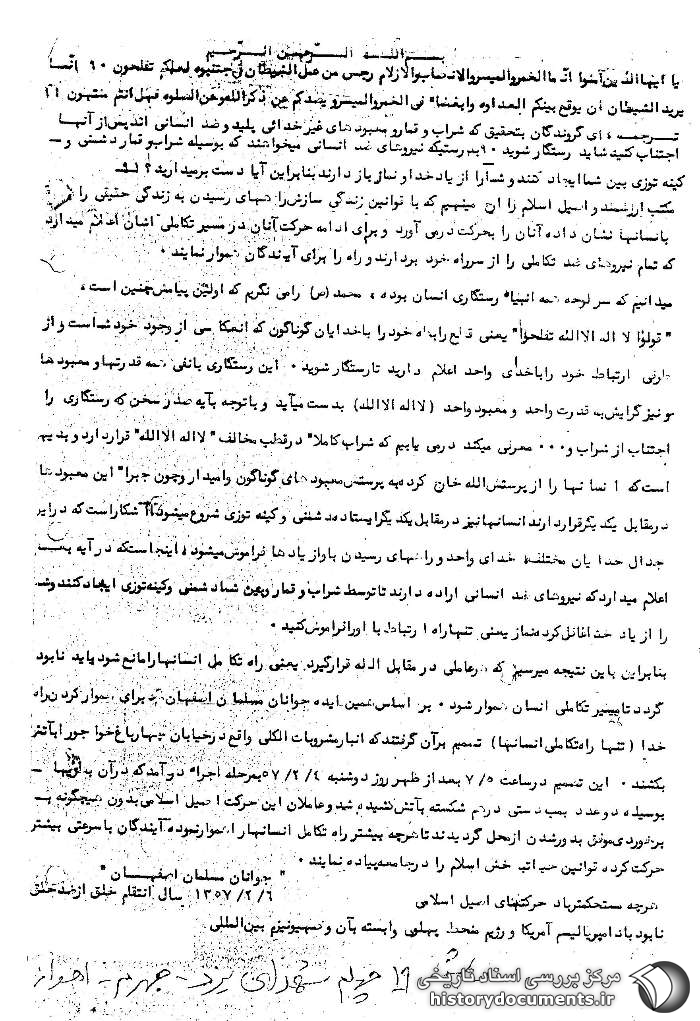 بسم اللـه الـرّحمـن الـرّحیـم
یا ایهاالذین آمنوا انّما الخمروالمیسروالانصاب والازلام رجس من عمل الشیطان فاجتنبوه لعلکم تفلحون ۹۰ انّمـا
یرید الشیطان ان یوقع بینکم العداوه والبغضاء فی الخمروالمیسرو یصدکم عن ذکرالله وعن الصلوه فهل انتم منتهون ۹۱
ترجمه، ای گروندگان بتحقیق که شراب و قمارو معبودهای غیرخدائی پلید و ضد انسانی اند پس از آنها
اجتناب کنید شاید رستگار شوید ۹۰ بدرستیکه نیروهای ضد انسانی میخواهند که بوسیله شراب و قمار دشمنی و
کینه توزی بین شما ایجاد کنند و شمارا از یاد خدا و نماز باز دارند بنابراین آیا دست برمیدارید ؟ ۹۱
مکتب ارزشمند و اصیل اسلام را ارج مینهیم که با قوانین زندگی سازش راههای رسیدن به زندگی حقیقی را
بانسانها نشان داده آنان را بحرکت درمی آورد و برای ادامه حرکت آنان در مسیر تکاملی اشان اعلام میدارد
که تمام نیروهای ضد تکاملی را از سرراه خود بردارند و راه را برای آیندگان هموار نمایند ۰
میدانیم که سر لوحه همه انبیاء رستگاری انسان بوده ، محمد (ص) رامی نگریم که اولین پیامش چنین است ،
" قولوا لا اله الاالله تفلحوا" یعنی قطع رابطه خود را باخدایان گوناگون که انعکا سی از وجود خود شماست و از
طرفی ارتباط خود را باخدای واحد اعلام دارید تا رستگار شوید ۰ این رستگاری بانفی همه قدرتها و معبودها
و نیز گرایش به قدرت واحد و معبود واحد (لااله الاالله) بدست میآید و با توجه بآیه صدر سخن که رستگاری را
اجتناب از شراب و ۰۰۰ معرفی میکند درمی یابیم که شراب کاملا" درقطب مخالف " لااله الاالله" قرار دارد و بدیهی
است که انسانها را از پرستش الله خارج کرده به پرستش معبودهای گوناگون وامیدارد وچون این معبودها
درمقابل یکدیگر قرار دارند انسانها نیز درمقابل یکدیگر ایستاده دشمنی و کینه توزی شروع میشود آشکار است که در این
جدال خدایان مختلف خدای واحد و راههای رسیدن باو از یادها فراموش میشود ، اینجاست که در آیه بعد
اعلام میدارد که نیروهای ضد انسانی اراده دارند تا توسط شراب و قمار وبین شما دشمنی وکینه توزی ایجاد کنند و شما
را از یاد خدا غافل کرده نماز یعنی تنها راه ارتباط با او را فراموش کنید ۰
بنابراین باین نتیجه میرسیم که هرعاملی در مقابل الله قرارگیرد یعنی راه تکامل انسانها را مانع شود باید نابود
گردد تا مسیر تکاملی انسان هموار شود ۰ بر اساس همین ایده جوانان مسلمان اصفهان برای هموار کردن راه
خدا (تنها راه تکاملی انسانها) تصمیم برآن گرفتند که انبار مشروبات الکلی واقع درخیابان چهارباغ خواجو را بآتش
بکشند ۰ این تصمیم درساعت ۷/۵ بعد از ظهر روز دوشنبه ۵۷/۲/۴ بمرحله اجراء درآمد که درآن
بوسیله دو عدد بمب دستی درهم شکسته بآتش کشیده شد و عاملان این حرکت اصیل اسلامی بدون هیچگونه
برخوردی موفق بدورشدن ازمحل گردیدند تا هرچه بیشتر راه تکامل انسانها را هموار نموده آیندگان با سرعتی بیشتر
حرکت کرده قوانین حیات بخش اسلام را درجامعه پیاده نمایند ۰
" جوانان مسلمان اصفهـان "
هرچه مستحکمترباد حرکتهای اصیل اسلامی
۱۳۵۷/۲/۶ سال انتقام خلق از ضدخلق
نابود باد امپریالیسم آمریکا و رژیم منحط پهلوی وابسته بآن وصهیونیزم بین المللی
چهلم شهدای یزد - جهرم - اهواز
مرکز بررسی اسناد تاریخی
historydocuments.ir